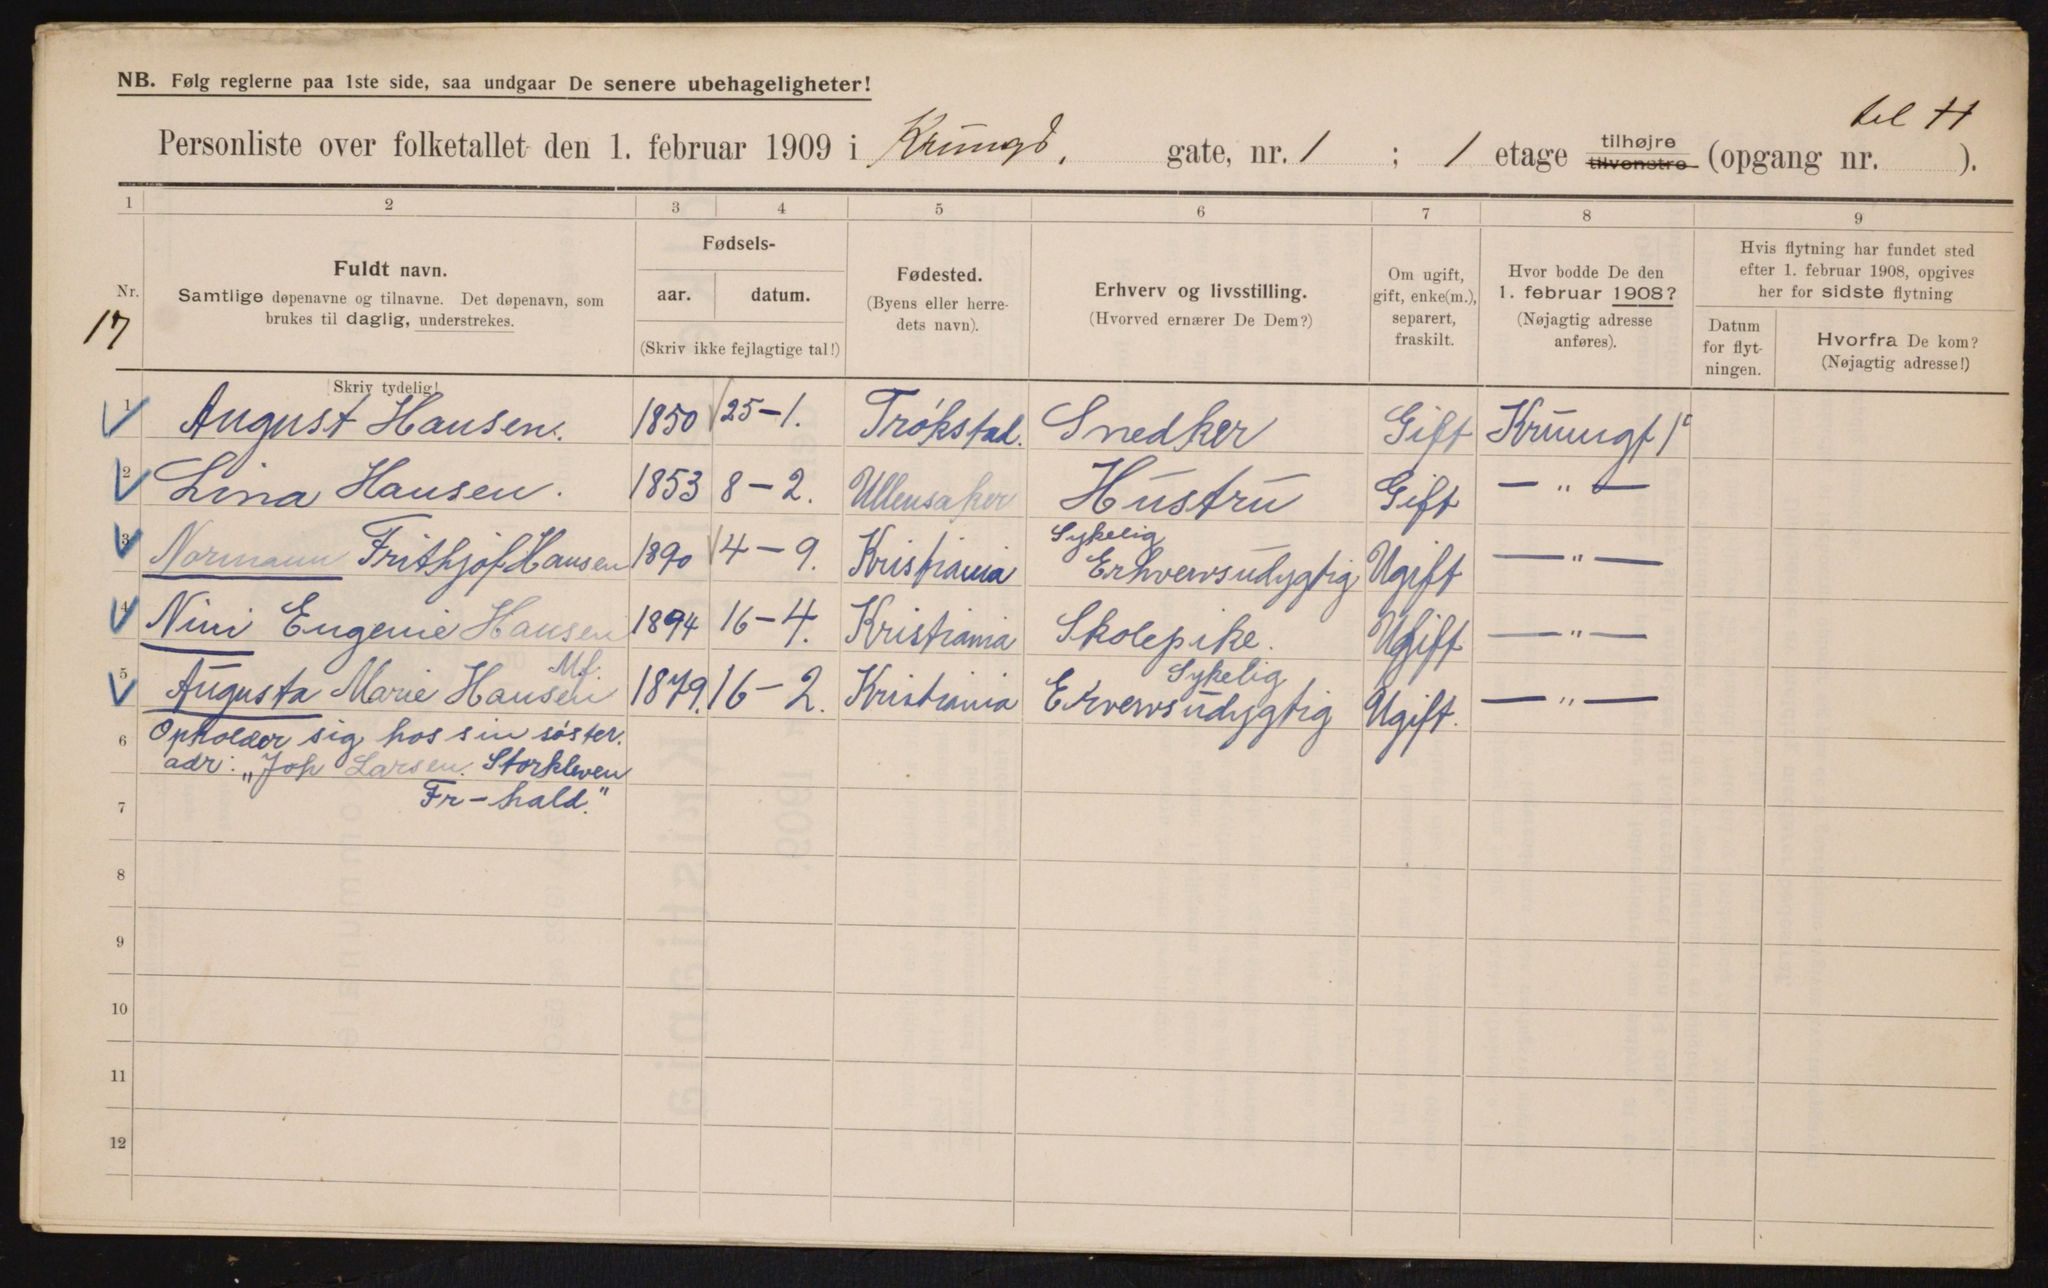 NB. Følg reglerne paa 1ste side, saa undgaar De senere ubehageligheter!
til H
Personliste over folketallet den 1. februar 1909 i Krumgd, gate, nr. 1 ; 1 etage tilhøjre tilvenstre (opgang nr. ).
1 2 3 4 5 6 7 8 9
Nr. 17
Fuldt navn.
Samtlige døpenavne og tilnavne. Det døpenavn, som
brukes til daglig, understrekes.
Skriv tydelig!
Fødsels-
aar. datum.
(Skriv ikke fejlagtige tal!)
Fødested.
(Byens eller herre-
dets navn).
Erhverv og livsstilling.
(Hvorved ernærer De Dem?)
Om ugift,
gift, enke(m.),
separert,
fraskilt.
Hvor bodde De den
1. februar 1908?
(Nøjagtig adresse
anføres).
Hvis flytning har fundet sted
efter 1. februar 1908, opgives
her for sidste flytning
Datum
for flyt-
ningen.
Hvorfra De kom?
(Nøjagtig adresse!)
1 August Hansen. 1850 25-1. Trøkstad. Snedker Gift Krumgt 1c
2 Lina Hansen. 1853 8-2. Ullensaker Hustru Gift — " —
3 Normann Frithjof Hansen 1890 4-9. Kristiania Sykelig Erhvervsudygtig Ugift — " —
4 Nini Eugenie Hansen 1894 16-4. Kristiania Skolepike. Ugift — " —
5 Augusta Marie Hansen Mf. 1879. 16-2. Kristiania Sykelig Ervervsudygtig Ugift. — " —
6 Opholder sig hos sin søster.
adr: "Joh Larsen. Storkleven
7 Fr-hald."
8
9
10
11
12